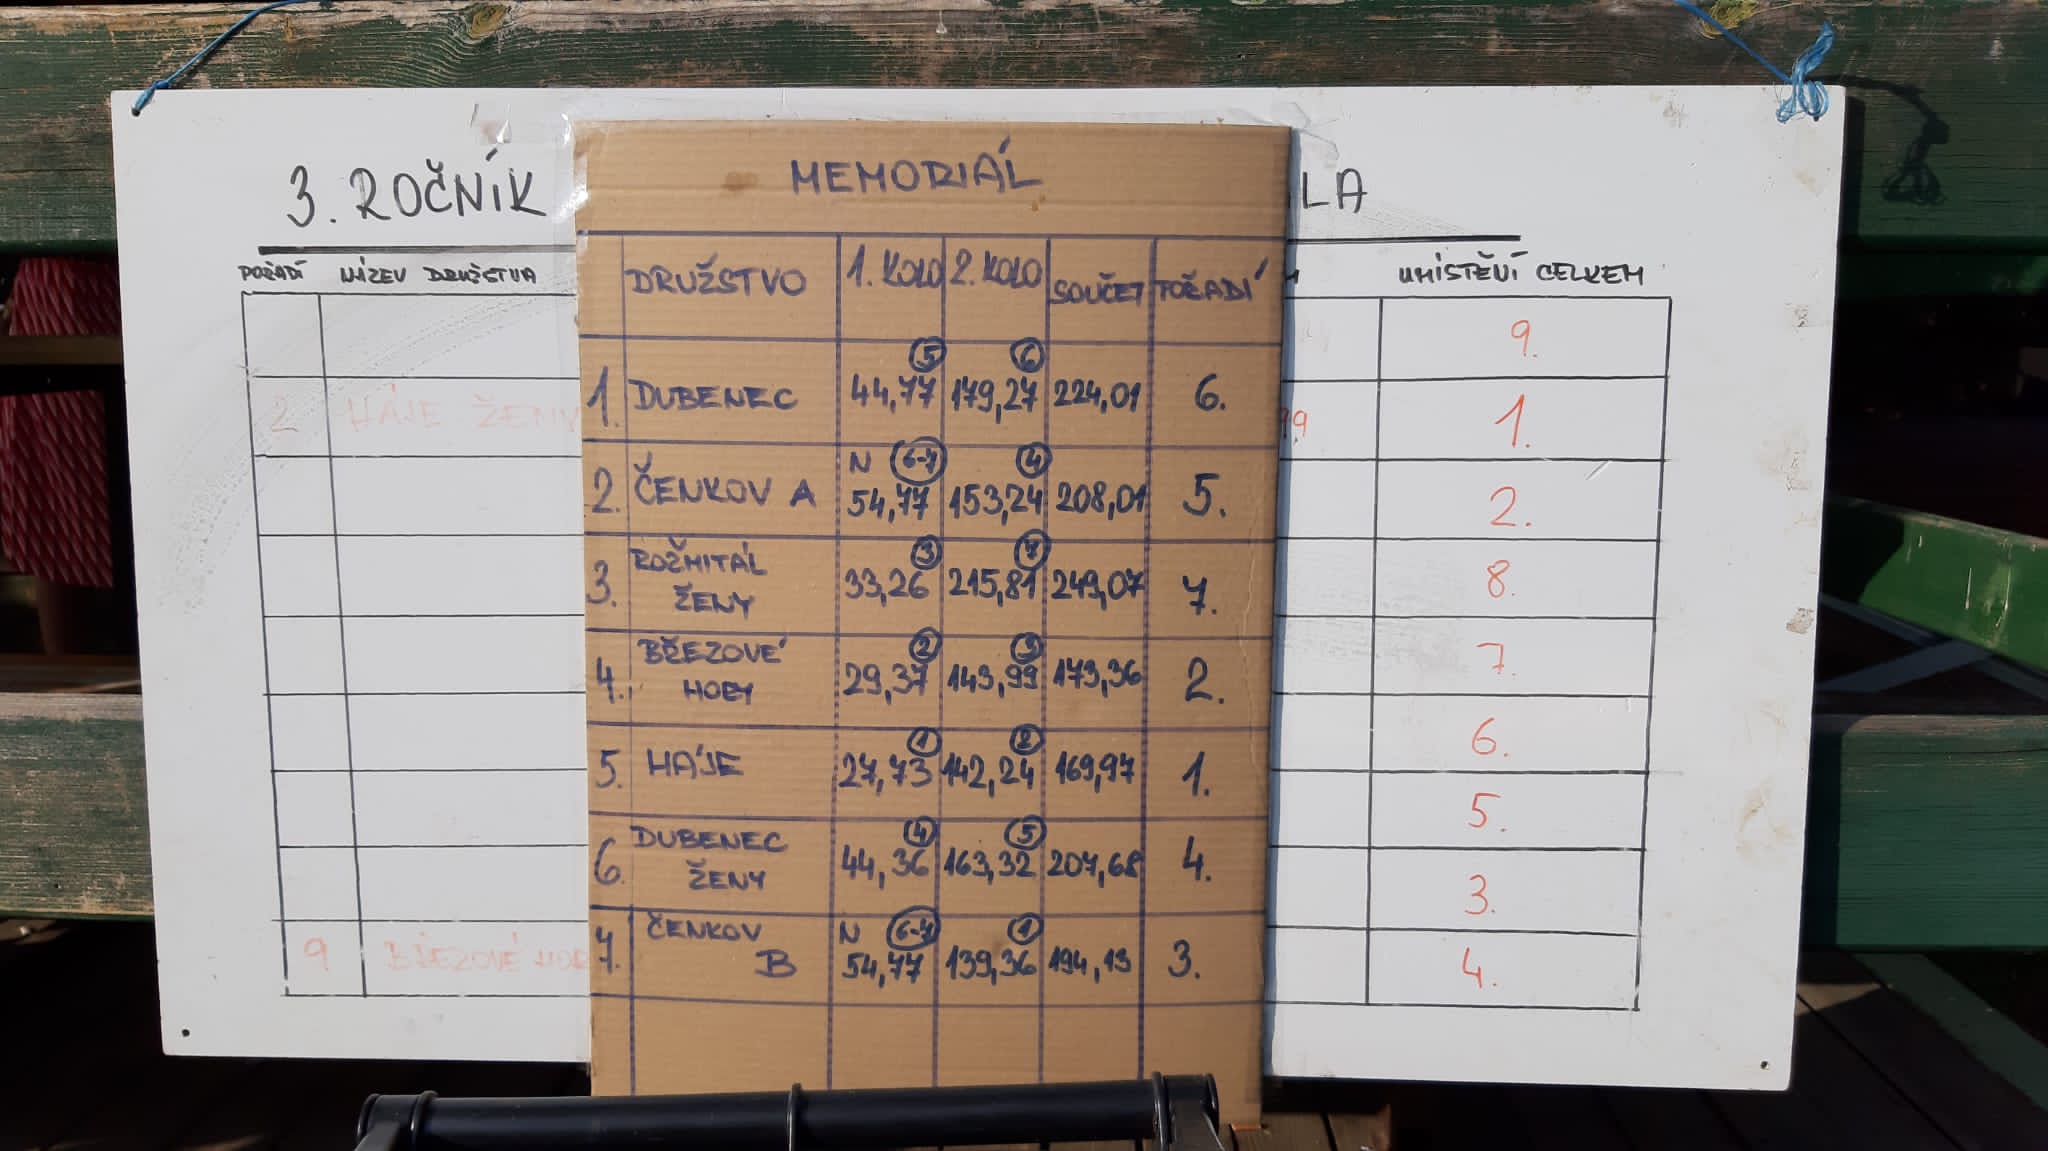 3. ROČNÍK
LA
POŘADÍ NÁZEV DRUŽSTVA
UMÍSTĚNÍ CELKEM
2 HÁJE ŽENY
9 BŘEZOVÉ HOR
99
9.
1.
2.
8.
7.
6.
5.
3.
4.
MEMORIÁL
DRUŽSTVO 1. KOLO 2. KOLO SOUČET POŘADÍ
5 6
1. DUBENEC 44,77 179,27 224,01 6.
N 6-7 4
2. ČENKOV A 54,77 153,24 208,01 5.
3 7
3. ROŽMITÁL ŽENY 33,26 215,81 249,07 7.
2 3
4. BŘEZOVÉ HORY 29,37 143,99 173,36 2.
1 2
5. HÁJE 27,73 142,24 169,97 1.
4 5
6. DUBENEC ŽENY 44,36 163,32 207,68 4.
N 6-7 1
7. ČENKOV B 54,77 139,36 194,13 3.